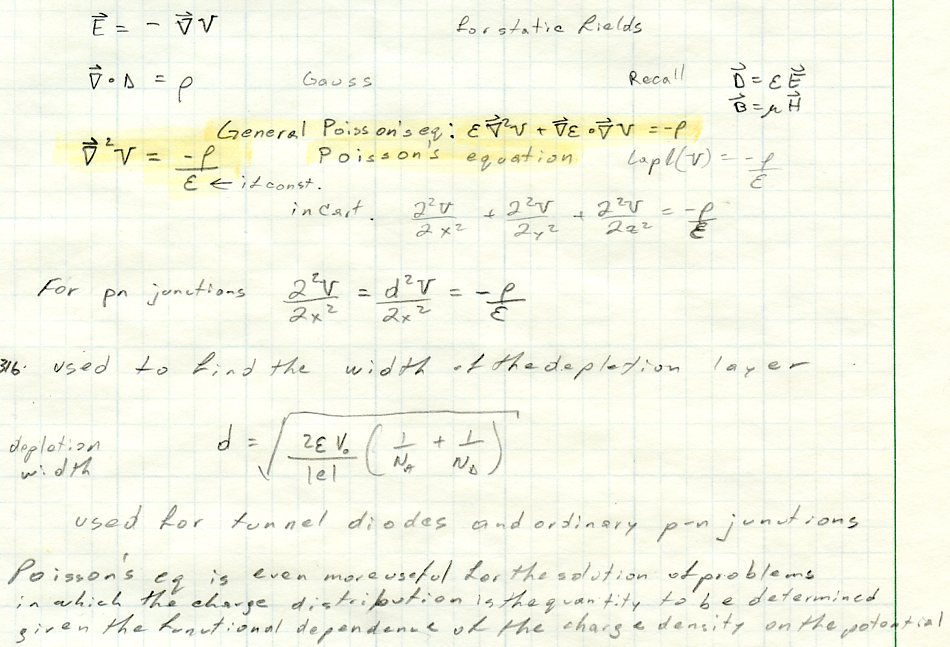 E⃗ = - ∇⃗V for static fields
∇⃗ • D = ρ Gauss Recall D⃗ = εE⃗
B⃗ = μH⃗
General Poisson's eq: ε∇⃗²V + ∇⃗ε•∇⃗V = -ρ
∇⃗²V = -ρ/ε Poisson's equation Lapl(V) = -ρ/ε
← if const.
in cart. ∂²V/∂x² + ∂²V/∂y² + ∂²V/∂z² = -ρ/ε
For pn junctions ∂²V/∂x² = d²V/∂x² = -ρ/ε
316. used to find the width of the depletion layer
depletion width d = √(2εV₀/|e| (1/N_A + 1/N_D))
used for tunnel diodes and ordinary p-n junctions
Poisson's eq is even more useful for the solution of problems
in which the charge distribution is the quantity to be determined
given the functional dependence of the charge density on the potential